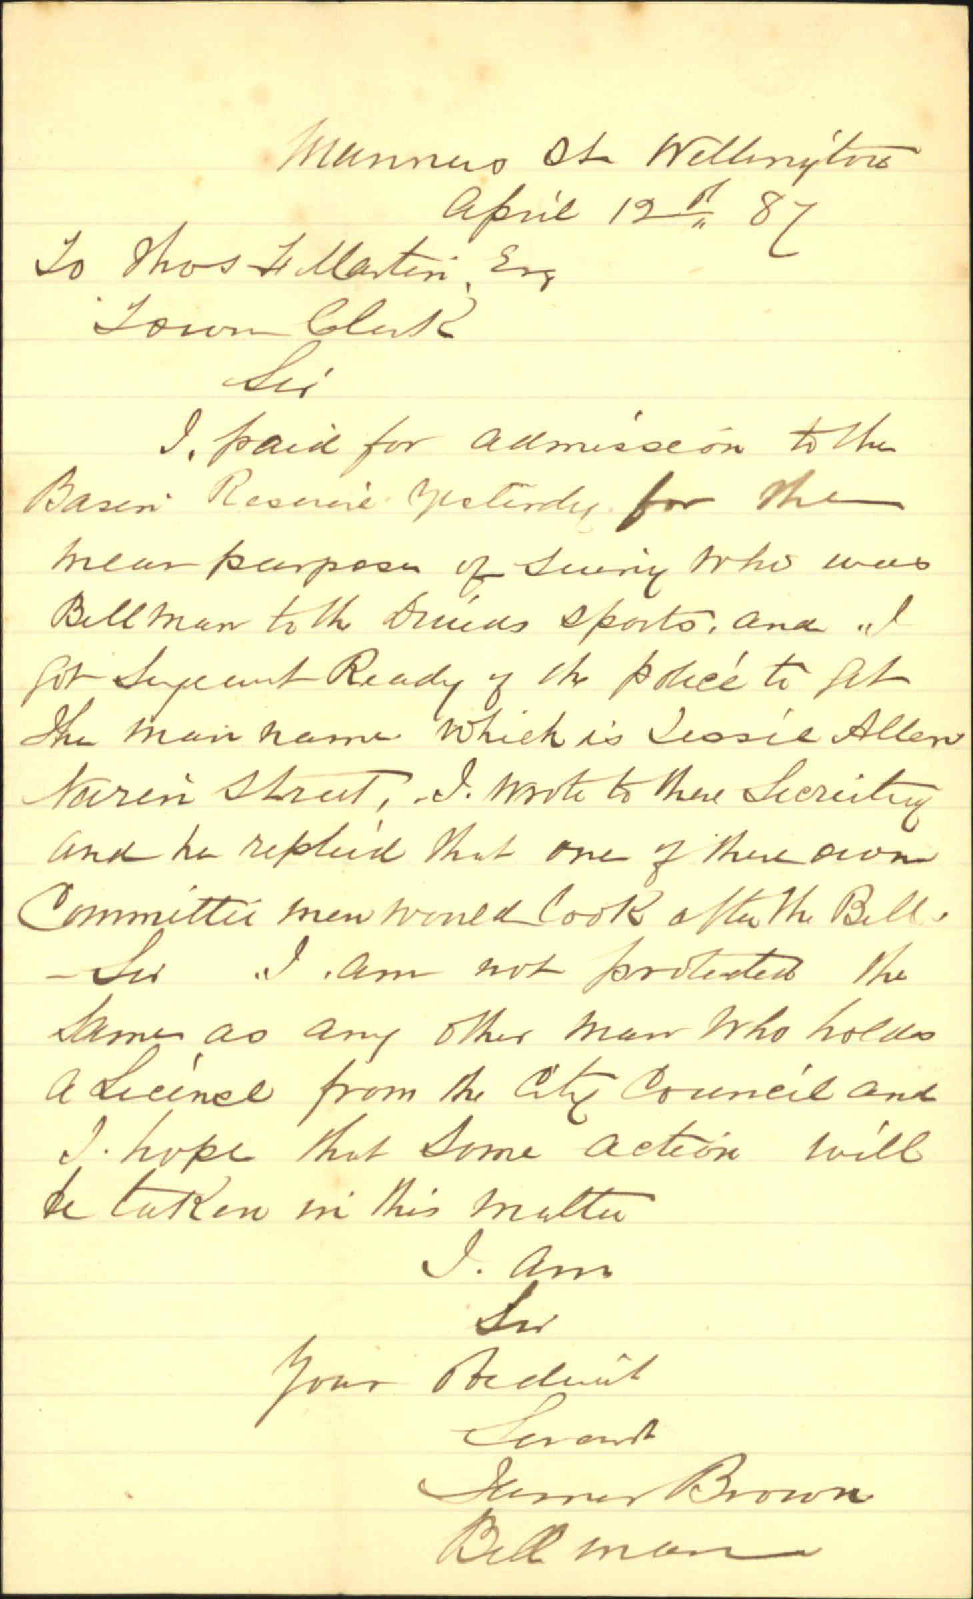 Manners St Wellington
April 12th 87
To Thos F Martin, Esq
Town Clerk
Sir
I. paid for admisseon to the
Basin Reserve yesterdy. for the
mear purpose of seeing who was
Bellman to the Druids sports. and I
got Sergeant Ready of the police to get
the man name which is Jessie Allen
Nairin Street, I. wrote to there Secreitry
and he replied that one of there own
Committee men would look after the Bell.
- Sir I. am not protected the
same as any other man who holds
a License from the City Council and
I. hope that some action will
be taken in this matter
I. am
Sir
Your Obediuit
Servant
James Brown
Bellman